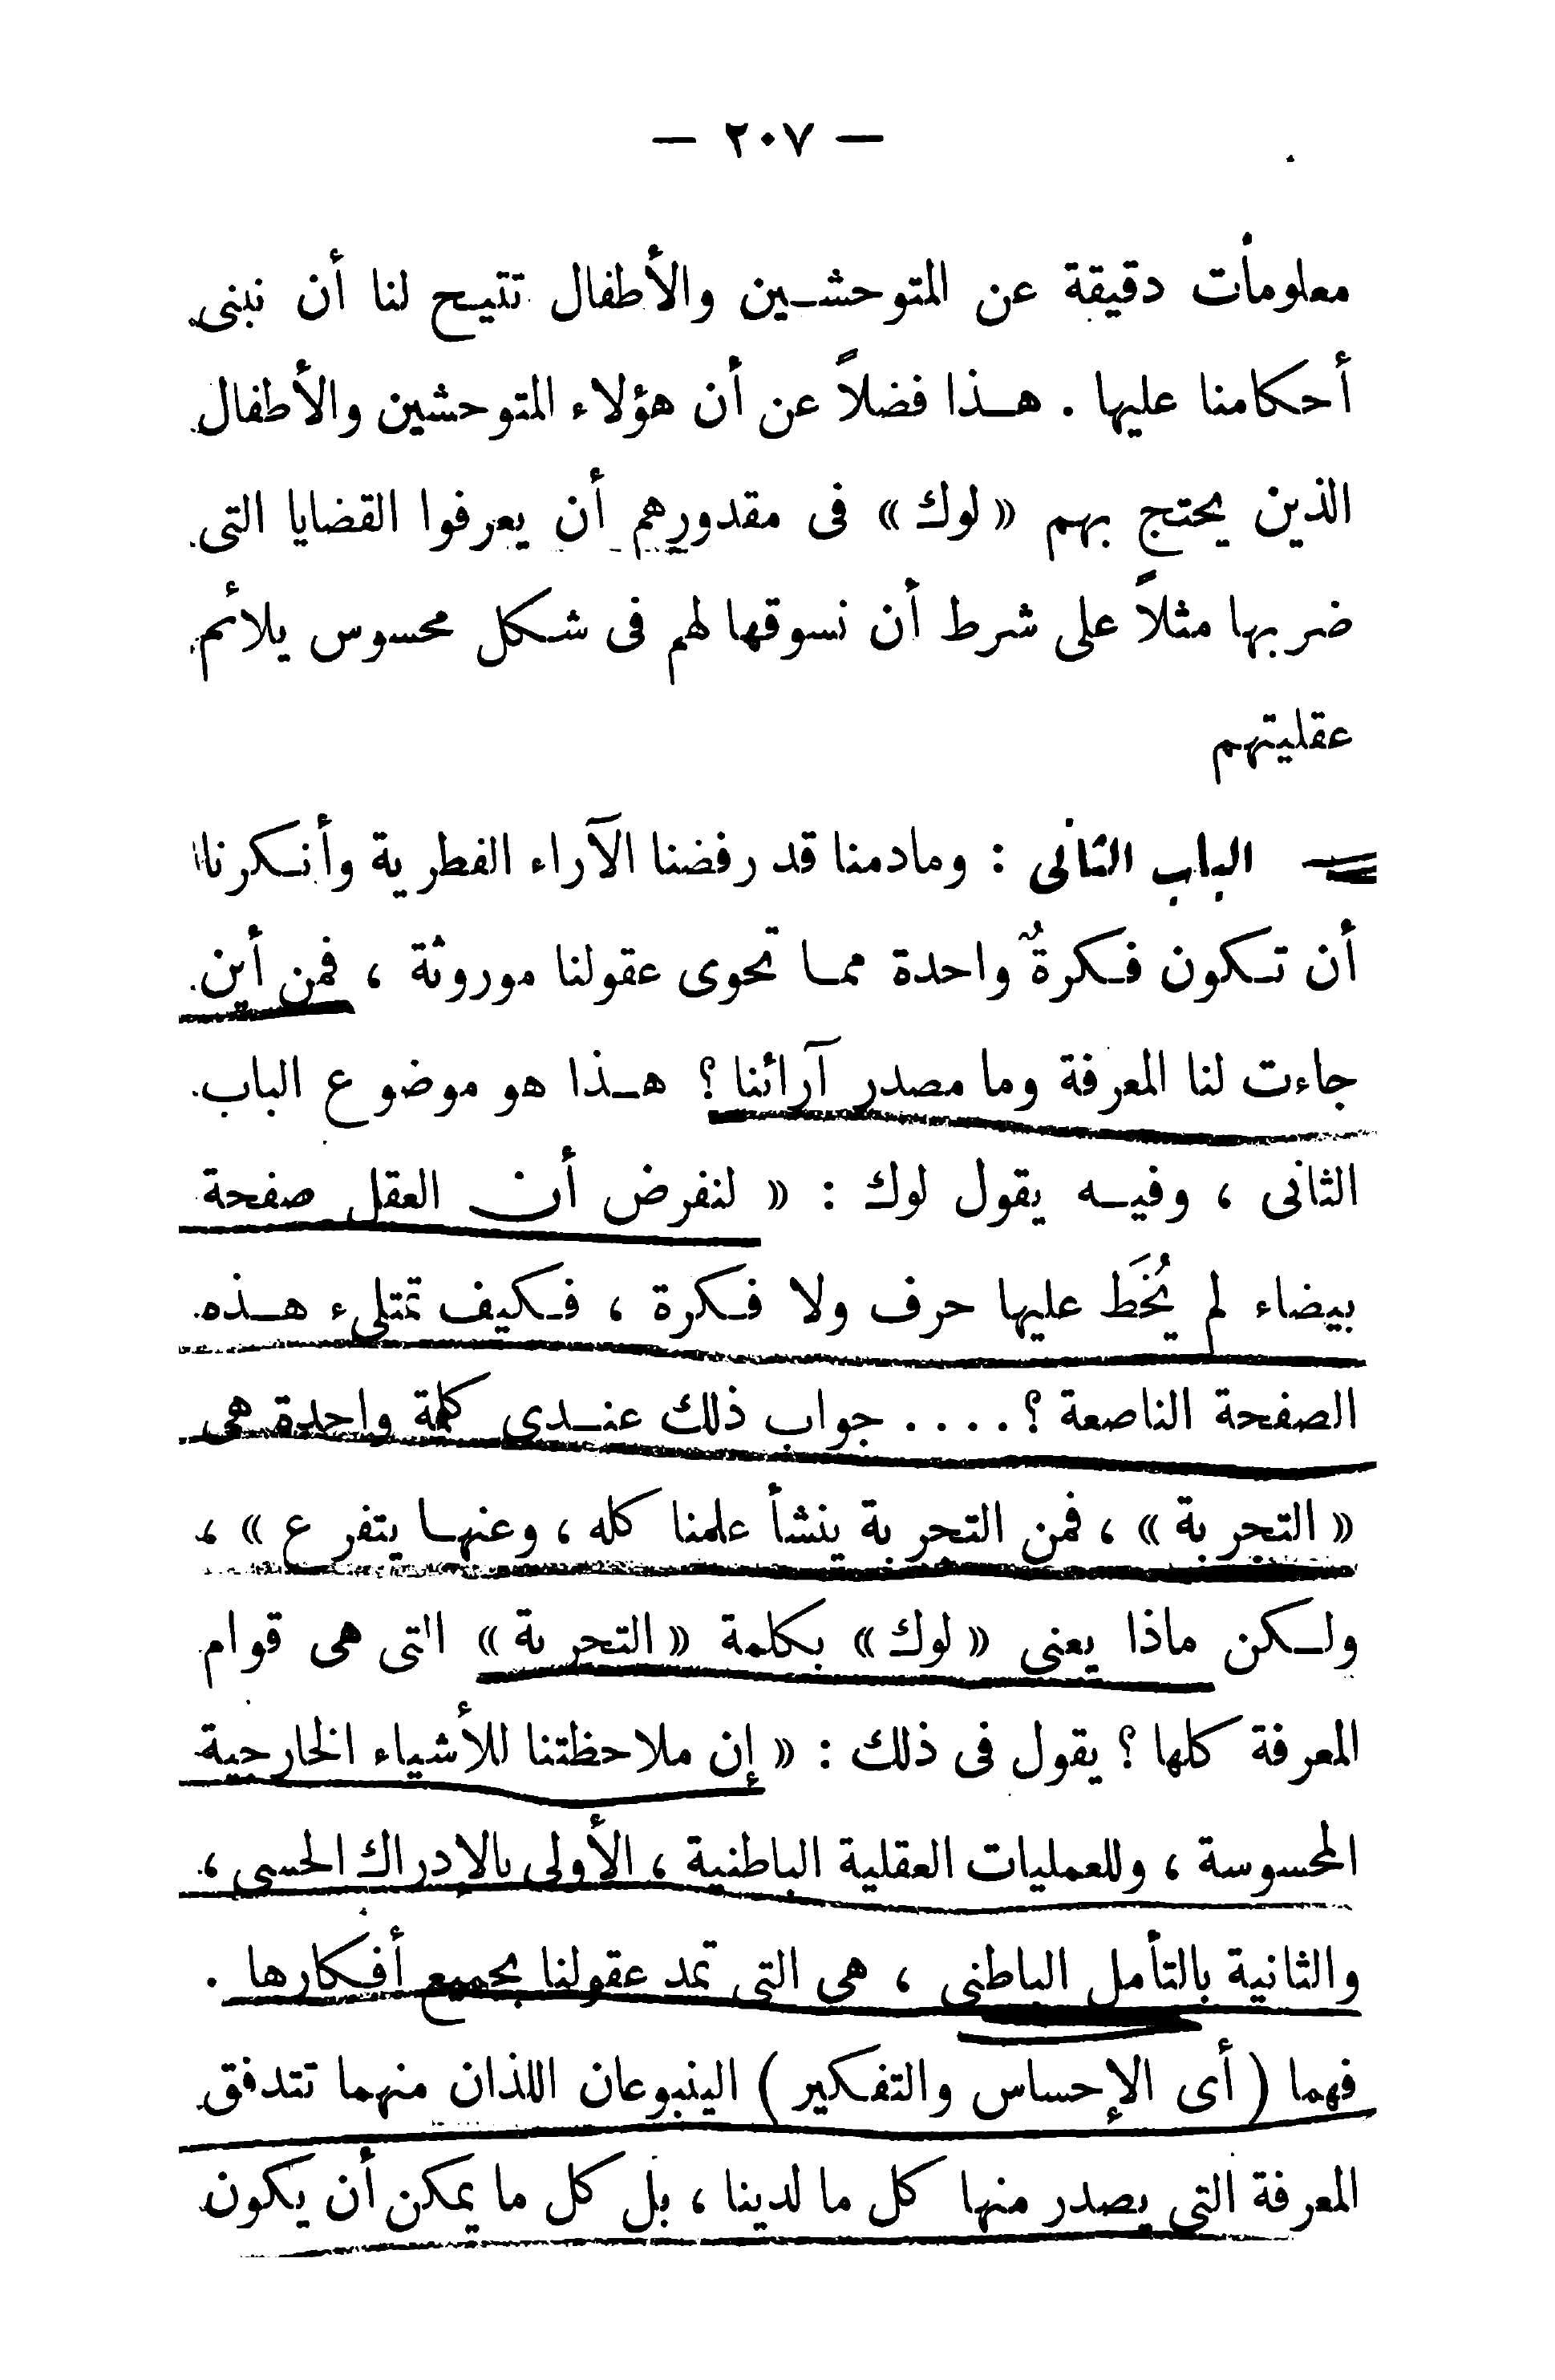 — ٢٠٧ —
معلومات دقيقة عن المتوحشين والأطفال تتيح لنا أن نبنى
أحكامنا عليها . هذا فضلاً عن أن هؤلاء المتوحشين والأطفال
الذين يحتج بهم « لوك » فى مقدورهم أن يعرفوا القضايا التى
ضربها مثلاً على شرط أن نسوقها لهم فى شكل محسوس يلائم
عقليتهم
الباب الثانى : ومادمنا قد رفضنا الآراء الفطرية وأنكرنا
أن تكون فكرةٌ واحدة مما تحوى عقولنا موروثة ، فمن أين
جاءت لنا المعرفة وما مصدر آرائنا ؟ هذا هو موضوع الباب
الثانى ، وفيه يقول لوك : « لنفرض أن العقل صفحة
بيضاء لم يُخَط عليها حرف ولا فكرة ، فكيف تمتلىء هذه
الصفحة الناصعة ؟ .... جواب ذلك عندى كلمة واحدة هى
« التجربة » ، فمن التجربة ينشأ علمنا كله ، وعنها يتفرع » ،
ولكن ماذا يعنى « لوك » بكلمة « التجربة » التى هى قوام
المعرفة كلها ؟ يقول فى ذلك : « إن ملاحظتنا للأشياء الخارجية
المحسوسة ، وللعمليات العقلية الباطنية ، الأولى بالإدراك الحسى ،
والثانية بالتأمل الباطنى ، هى التى تمد عقولنا بجميع أفكارها .
فهما ( أى الإحساس والتفكير ) الينبوعان اللذان منهما تتدفق
المعرفة التى يصدر منها كل ما لدينا ، بل كل ما يمكن أن يكون